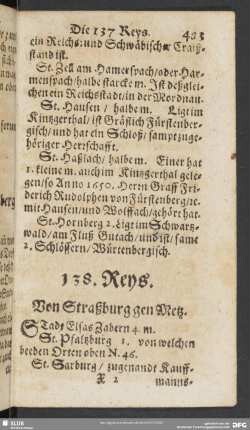 Die 137 Reys. 483
ein Reichs: und Schwäbischer Craiß-
stand ist.
St. Zell am Hamerspach / oder Har-
menspach / halbe starcke m. Ist deßglei-
chen ein Reichsstadt / in der Mordnau.
St. Hausen / halbe m. Ligt im
Kintzgerthal / ist Gräflich Fürstenber-
gisch / und hat ein Schloß / sampt zuge-
höriger Herrschafft.
St. Haßlach / halbe m. Einer hat
1. kleine m. auch im Kintzgerthal gele-
gen / so Anno 1650. Herrn Graff Fri-
derich Rudolphen von Fürstenberg / ne-
mit Hausen / und Wolffach / gehört hat.
St. Hornberg 2. Ligt im Schwartz-
wald / am Fluß Gutach / und ist / samt
2. Schlössern / Würtenbergisch.
138. Reys.
Von Straßburg gen Metz.
Stadt Elsas Zabern 4. m.
St. Pfaltzburg 1. von welchen
beeden Orten oben N. 46.
St. Sarburg / zugenandt Kauff-
X 2 manns-
SLUB
DFG